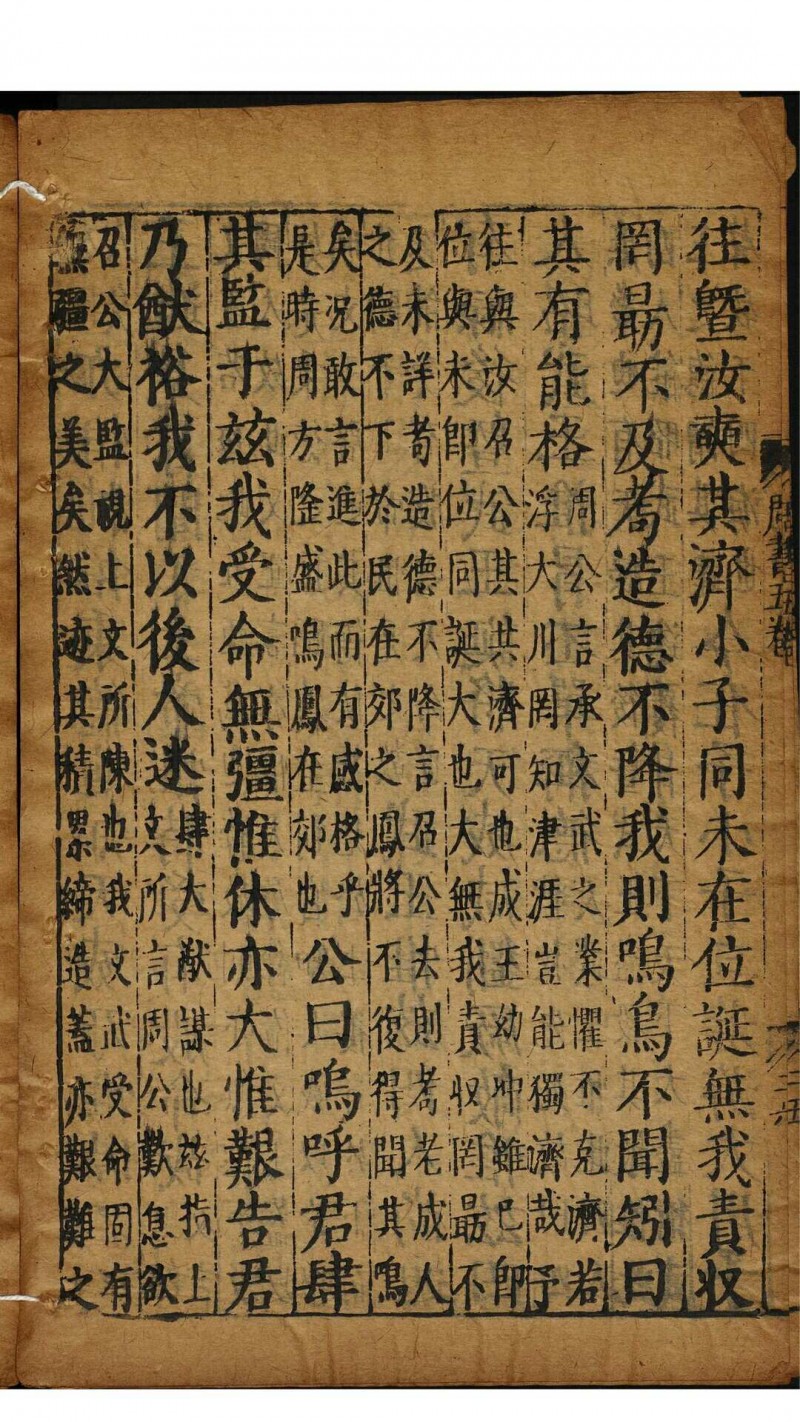 往曁汝奭其濟小子同未在位誕無我責収
罔朂不及耉造德不降我則鳴鳥不聞矧曰
其有能格周公言承文武之業懼不克濟若
浮大川罔知津涯豈能獨濟哉予
往與汝召公其共濟可也成王幼冲雖已即
位與未即位同誕大也大無我責収罔朂不
及未詳耉造德不降言召公去則耉老成人
之德不下於民在郊之鳳將不復得聞其鳴
矣况敢言進此而有感格乎
是時周方隆盛鳴鳳在郊也公曰嗚呼君肆
其監于兹我受命無彊惟休亦大惟艱告君
乃猷裕我不以後人迷肆大猷謀也兹指上
文所言周公歎息欲
召公大監視上文所陳也我文武受命固有
無疆之美矣然迹其積累締造蓋亦艱難之
周書五卷